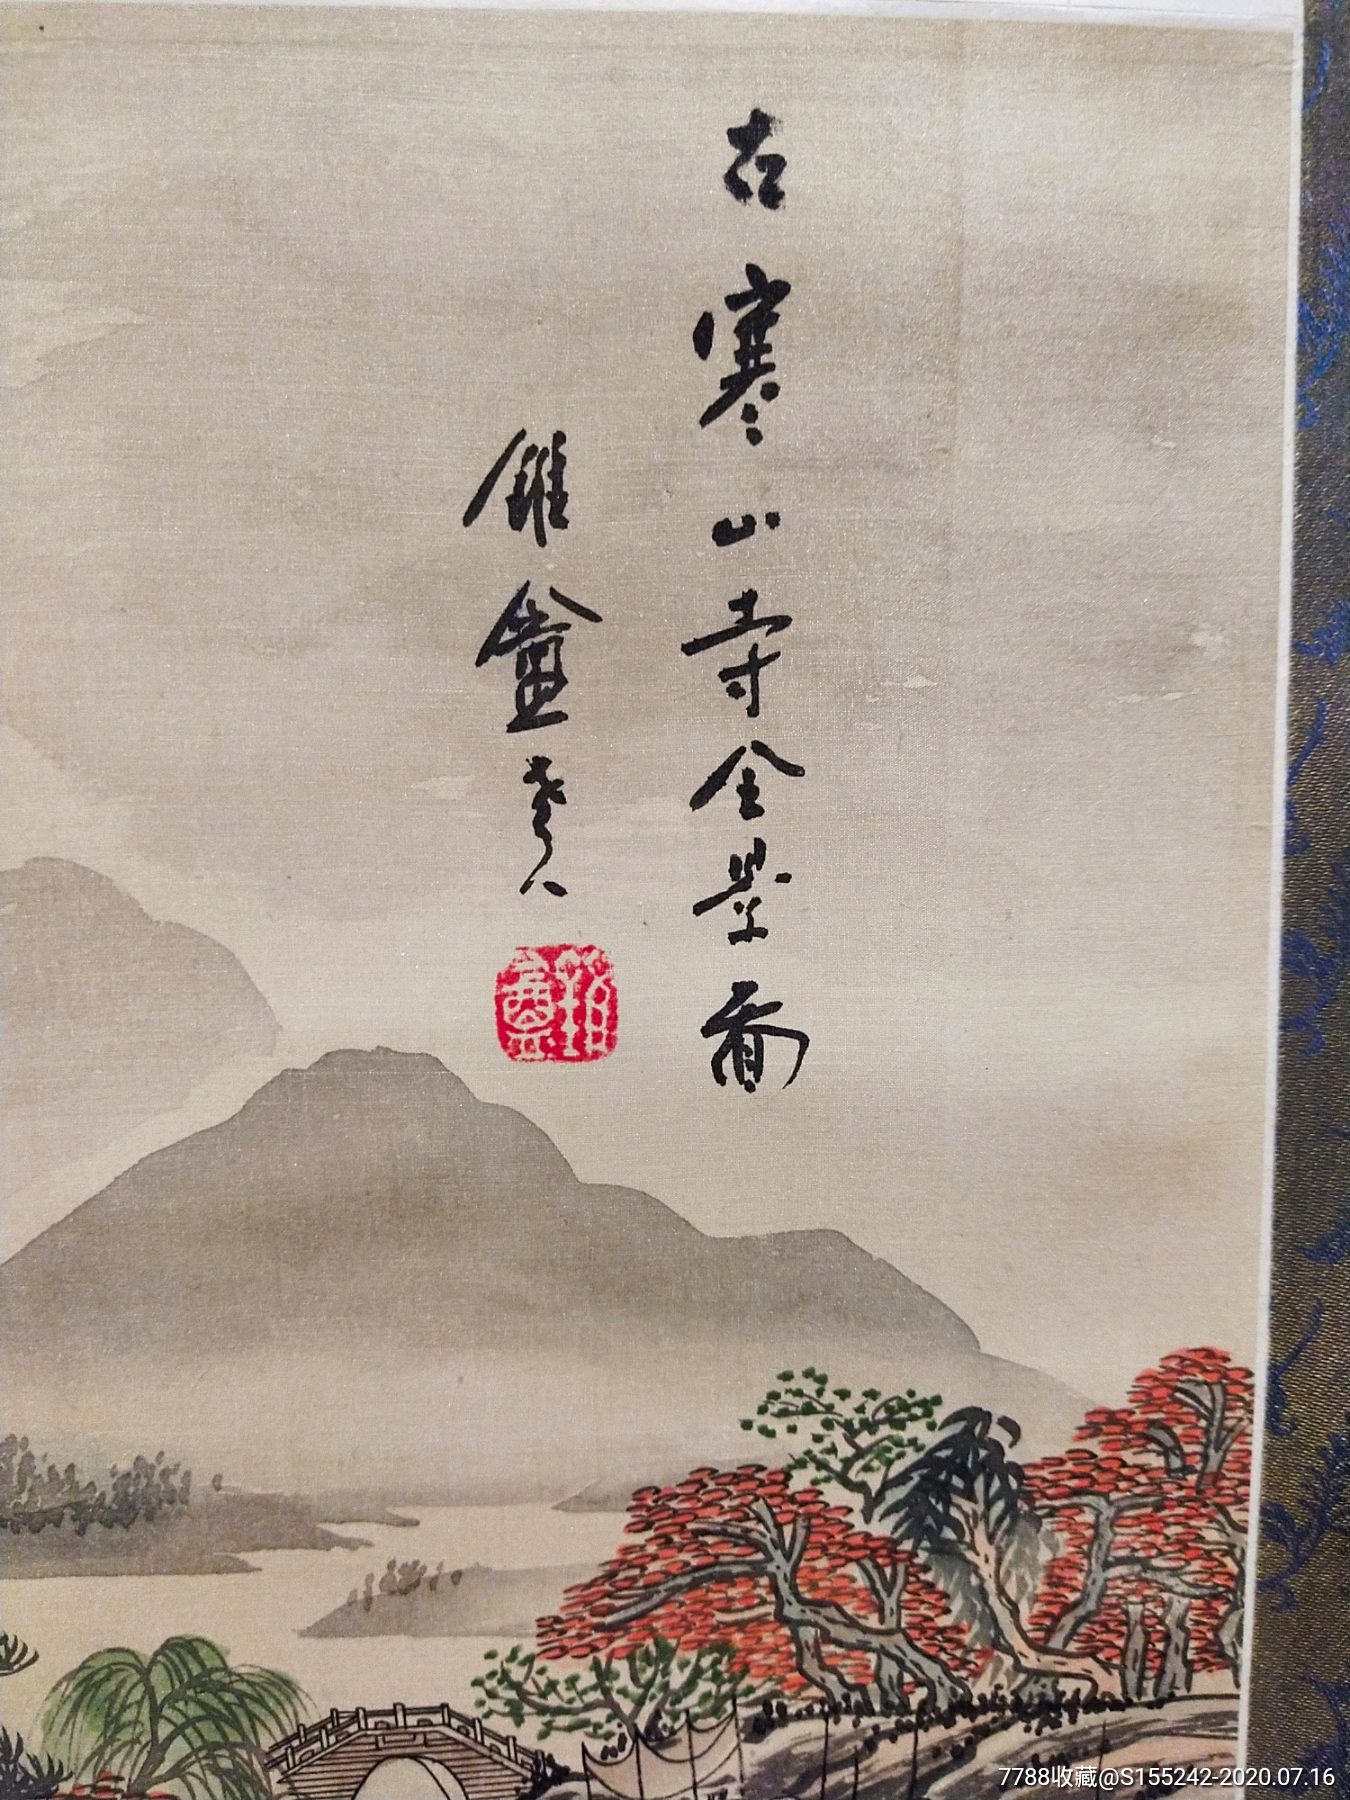 古寒山寺全景图
老人
7788收藏@S155242-2020.07.16